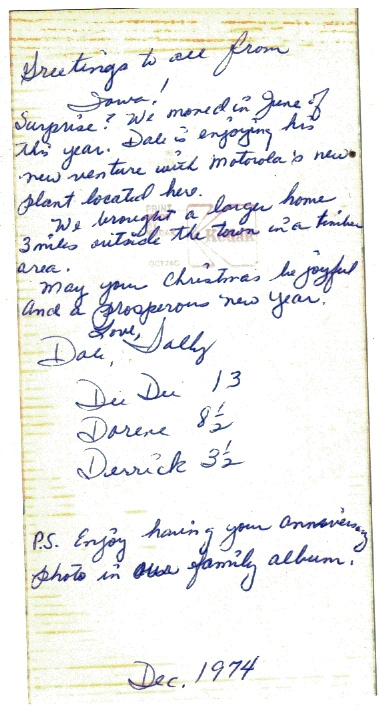 Greetings to all from
Iowa!
Surprise? We moved in June of
this year. Dale is enjoying his
new venture with Motorola's new
plant located here.
We brought a larger home
3 miles outside the town in a timber
area.
May your Christmas be joyful
And a prosperous new year.
Love,
Dale, Sally
Dee Dee 13
Darene 8½
Derrick 3½
P.S. Enjoy having your anniversary
photo in our family album.
Dec. 1974
PRINT
Kodak